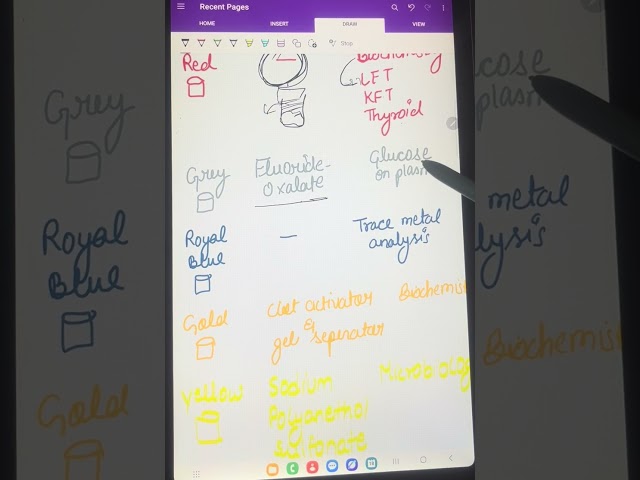 Recent Pages
HOME INSERT DRAW VIEW
Stop
Red
Biochemistry
LFT
KFT
Thyroid
Grey
Fluoride-
Oxalate
Glucose
on plasm
Royal
Blue
—
Trace metal
analysis
Gold
Clot activator
&
gel seperator
Biochemis
Yellow
Sodium
Polyanethol
sulfonate
Microbiology
Grey
Royal
Blue
Gold
cose
plasm
metal
lysis
Biochemis